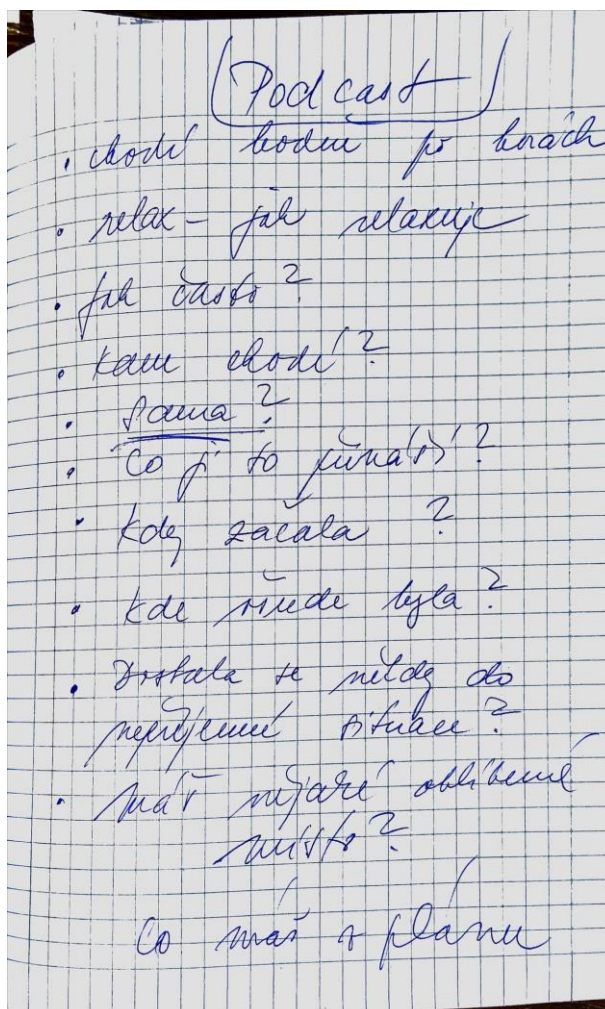 Podcast
• chodí hodně po horách
• relax - jak relaxuje
• Jak často?
• Kam chodí?
• Sama?
• Co jí to přináší?
• Kdy začala ?
• Kde všude byla?
• Dostala se někdy do
nepříjemné situace?
• máš nějaké oblíbené
místo?
Co máš v plánu